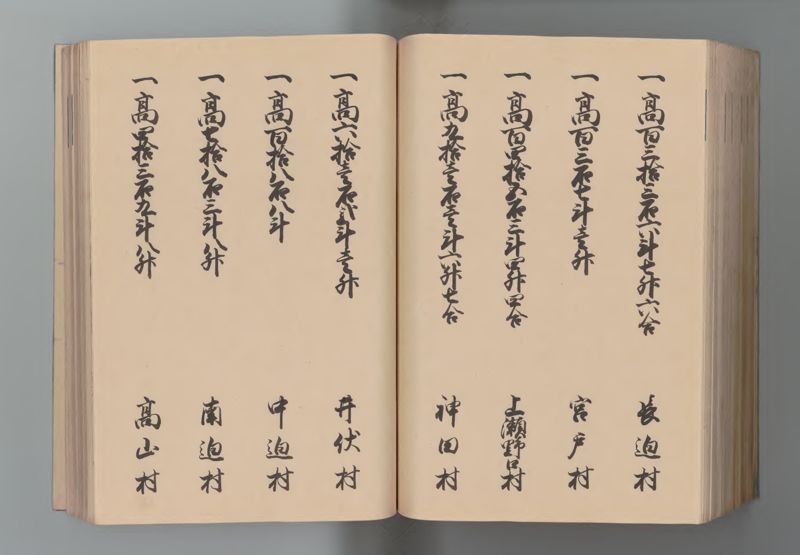 一高百三拾三石六斗七升六合 長迫村
一高百三石七斗壱升 宮戸村
一高百四拾五石三斗四升四合 上瀬野口村
一高九拾壱石壱斗六升七合 神田村
一高六拾壱石弐斗壱升 井伏村
一高百拾八石八斗 中迫村
一高七拾八石三斗八升 南迫村
一高四拾三石九斗八升 高山村